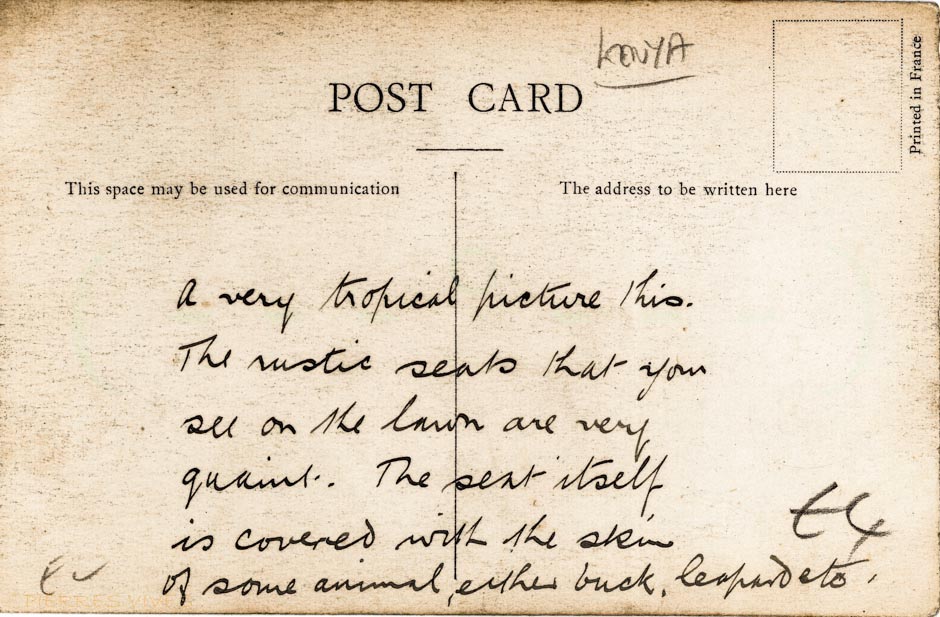 KENYA
POST CARD
Printed in France
This space may be used for communication
The address to be written here
A very tropical picture this.
The rustic seats that you
see on the lawn are very
quaint. The seat itself
is covered with the skin
of some animal, either buck, leopard etc.